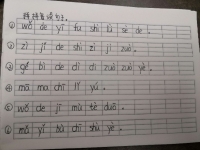 拼拼音读句子。
① wǒ de yī fu shì lǜ sè de 。
② zì jǐ de shì zì jǐ zuò 。
③ gē bì de dì di zuò zuò yè 。
④ mā ma chī lí yú 。
⑤ wǒ de jī mù tè duō 。
⑥ mǎ yǐ bù chī shù yè 。